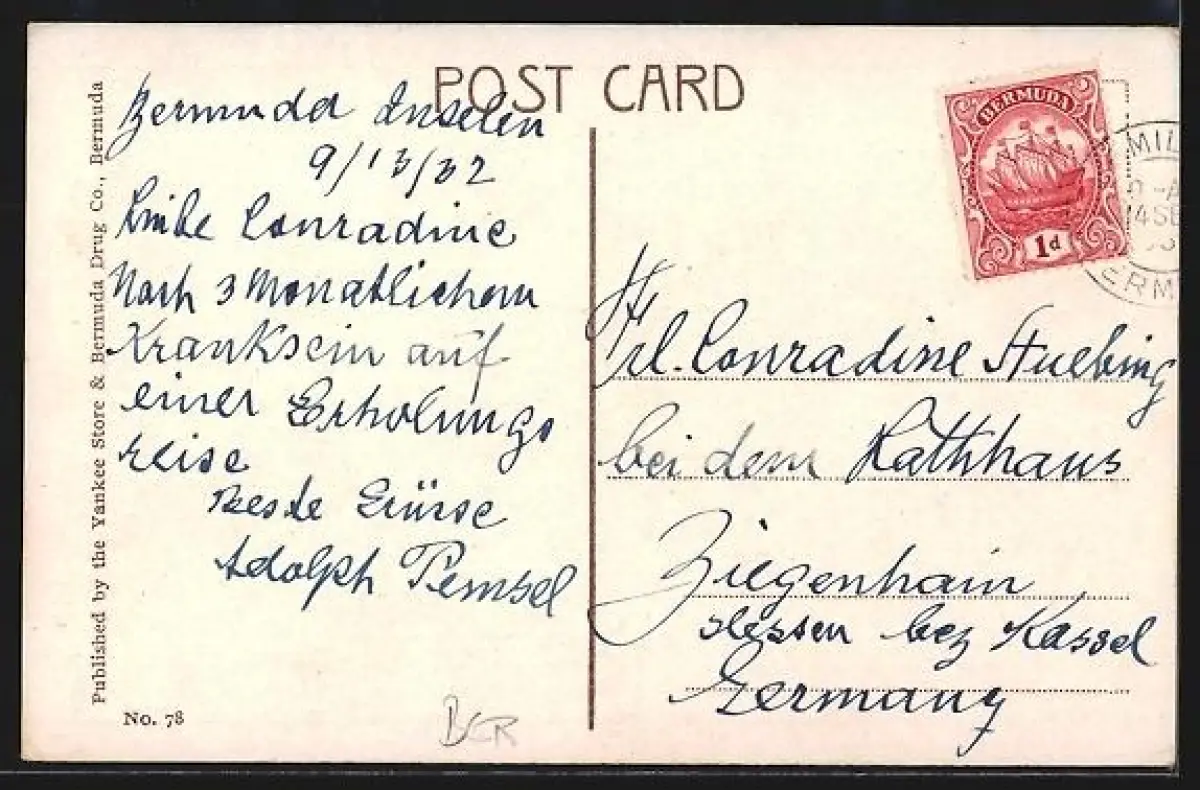 POST CARD
Bermuda Inseln
9/13/32
Liebe Conradine
Nach 3 Monatlichem
Kranksein auf
einer Erholungs
reise
Beste Grüsse
Adolph Pemsel
BERMUDA
1d
MIL
14 SE
ERM
Frl. Conradine Stuebing
bei dem Rathhaus
Ziegenhain
Hessen bez Kassel
Germany
Published by the Yankee Store & Bermuda Drug Co., Bermuda
No. 78
BER